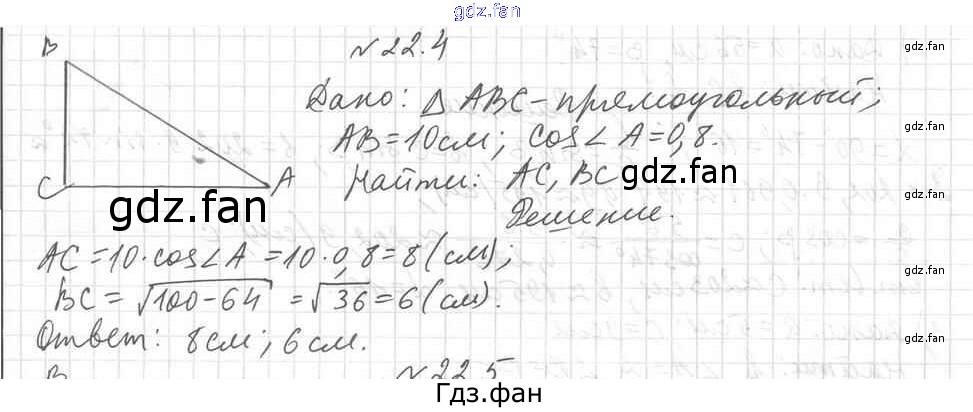 gdz.fan
N 22.4
B
C
A
Дано: Δ ABC - прямоугольный;
AB = 10 см; cos∠A = 0,8.
Найти: AC, BC
Решение.
AC = 10·cos∠A = 10·0,8 = 8 (см);
BC = √100-64 = √36 = 6 (см).
Ответ: 8 см; 6 см.
B
N 22.5
gdz.fan
gdz.fan
gdz.fan
gdz.fan
gdz.fan
gdz.fan
gdz.fan
Гдз.фан